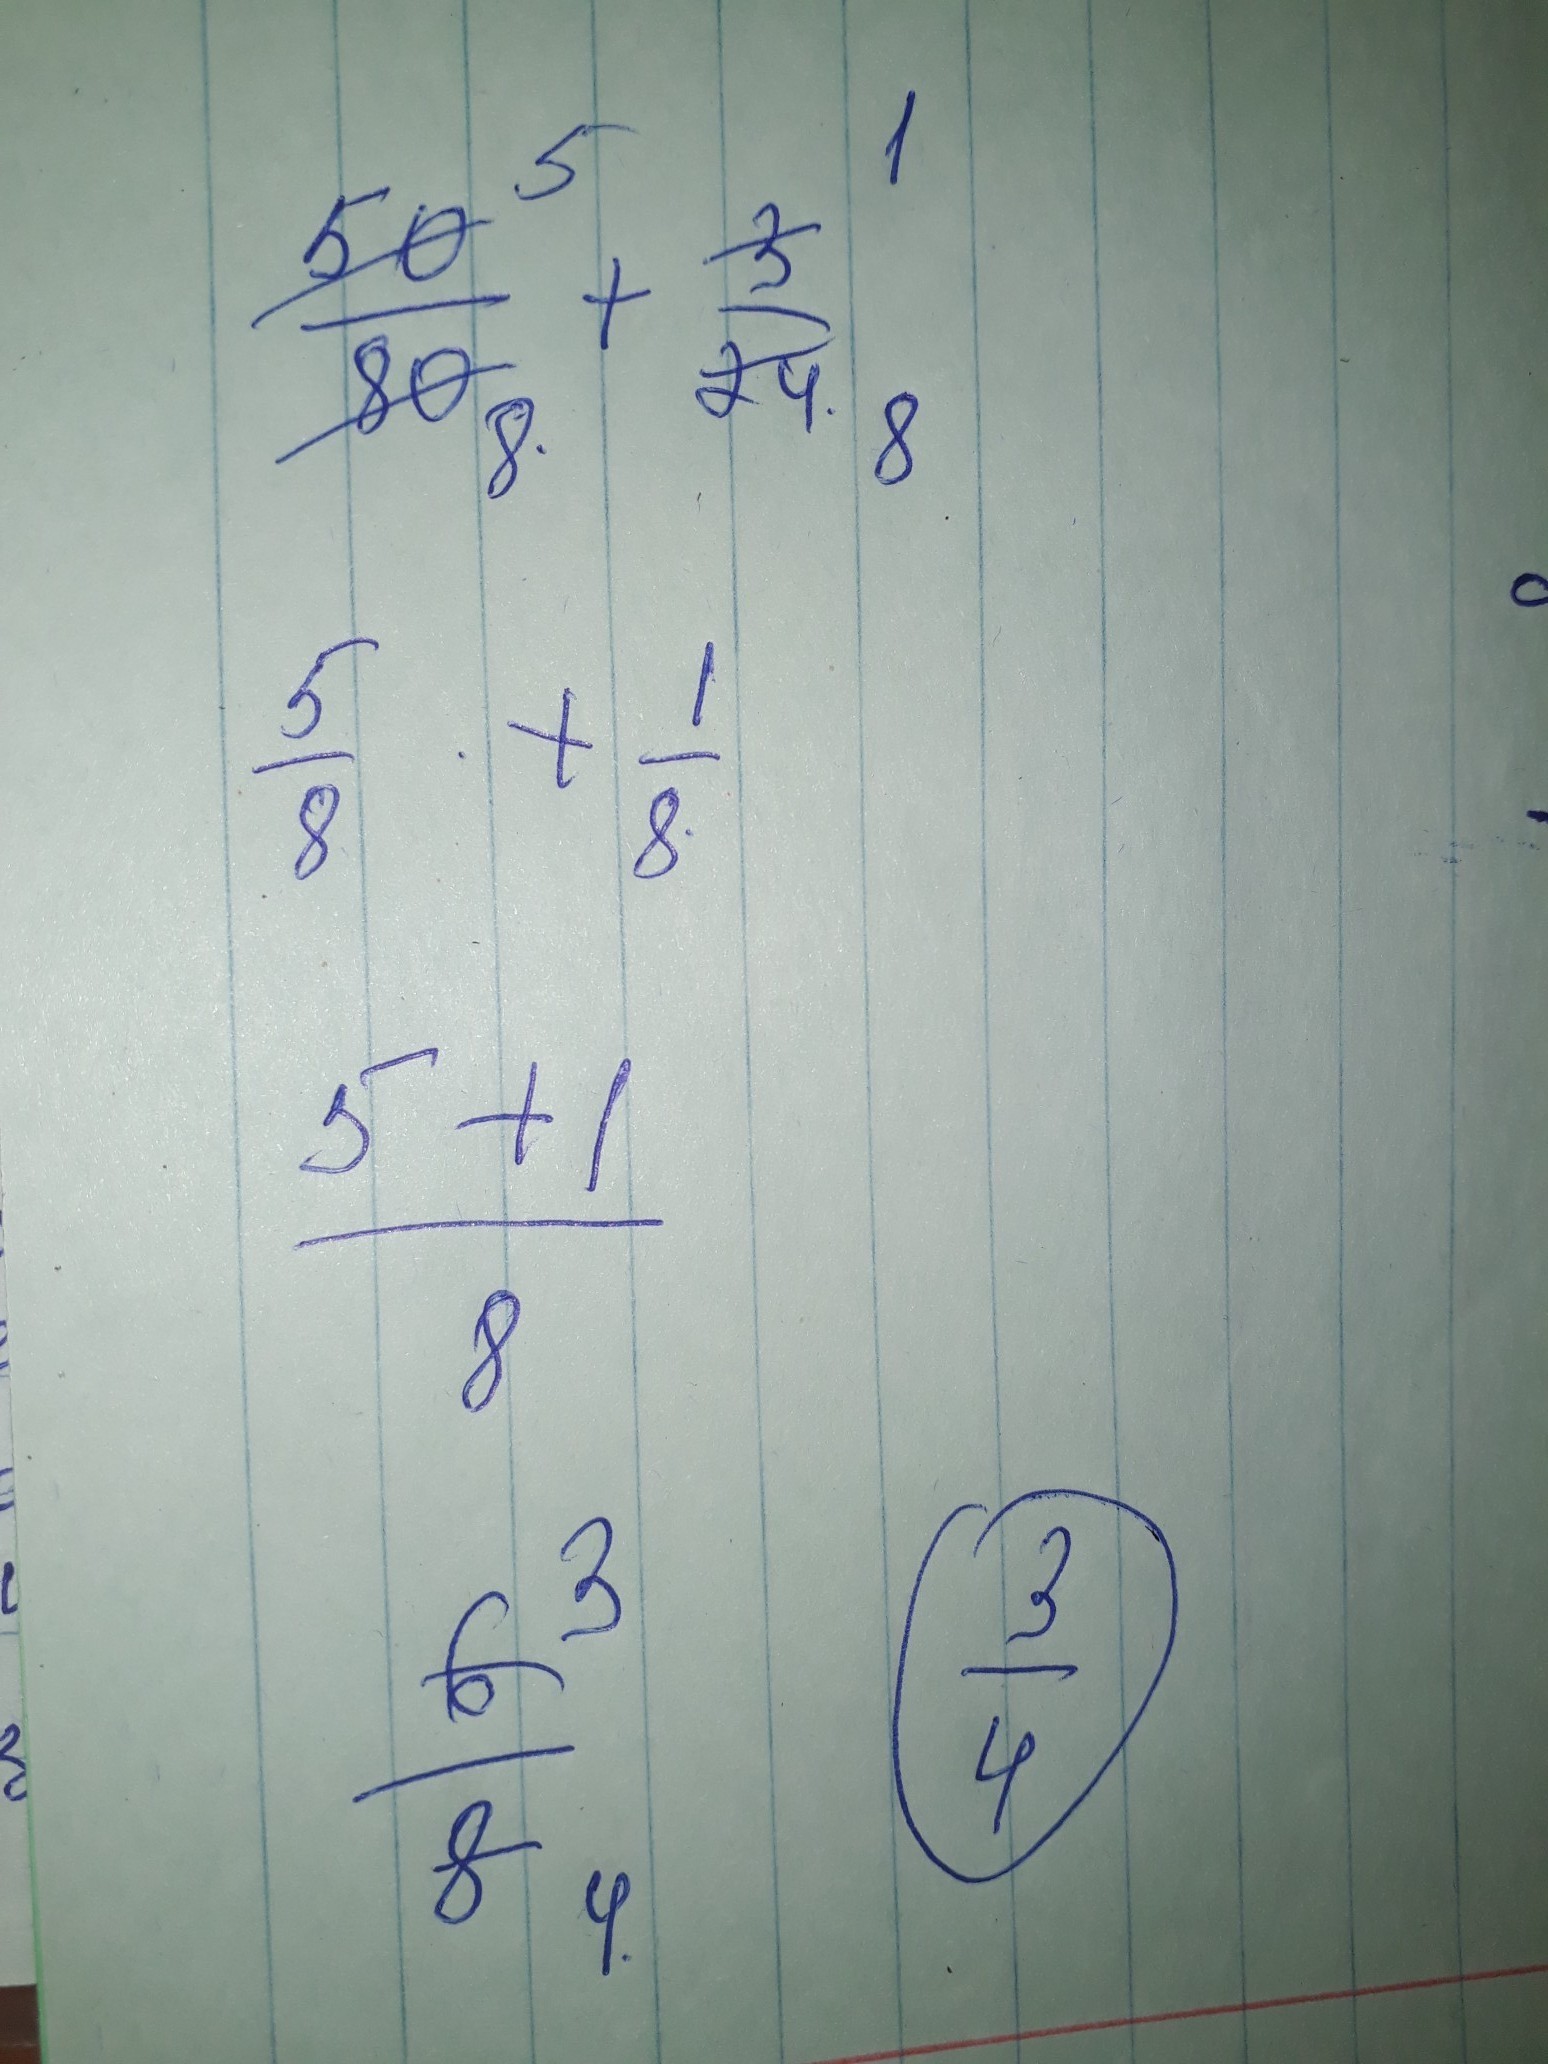 50/80 5/8 + 3/24 1/8
5/8 + 1/8
5+1/8
6/8 3/4
3/4